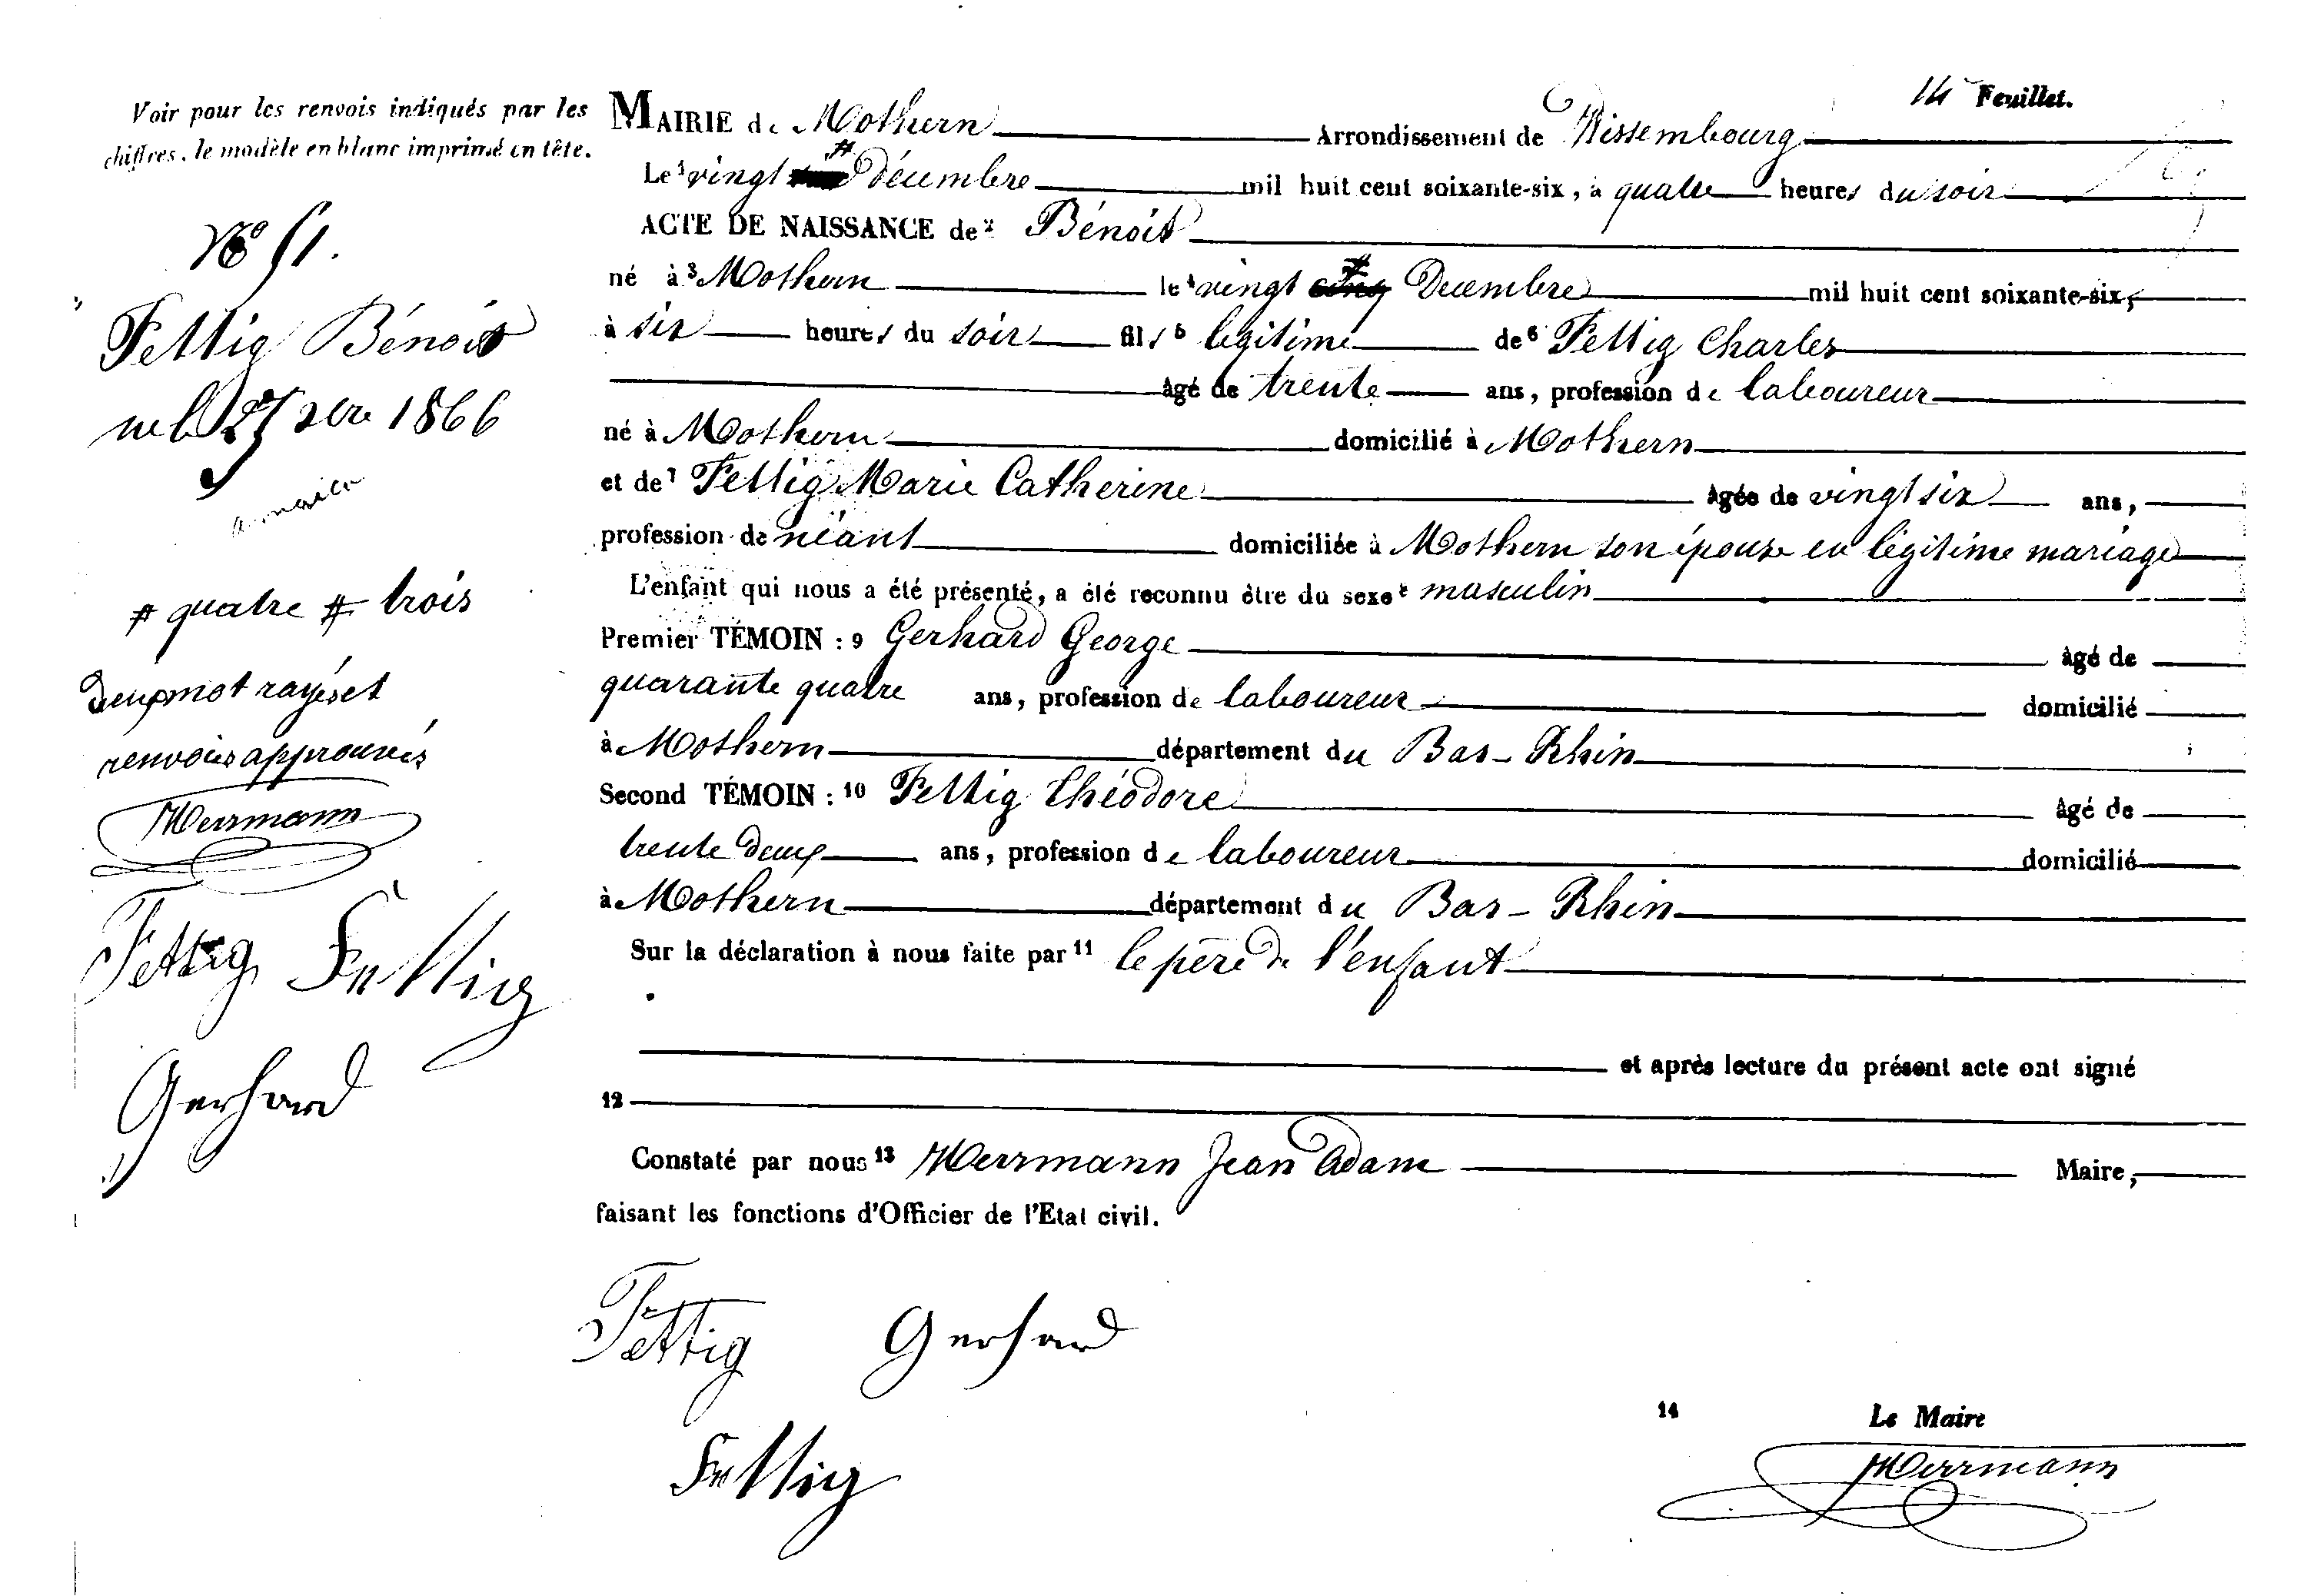 14 Feuillet.
Voir pour les renvois indiqués par les
chiffres, le modèle en blanc imprimé en tête.
MAIRIE de Mothern Arrondissement de Wissembourg
Le 1 vingt # Décembre mil huit cent soixante-six, à quatre heures du soir
ACTE DE NAISSANCE de 2 Bénoit
né à 3 Mothern le 4 vingt cinq # Decembre mil huit cent soixante-six,
à six heures du soir fils 5 légitime de 6 Fettig Charles
âgé de trente ans, profession de laboureur
né à Mothern domicilié à Mothern
et de 7 Fettig Marie Catherine âgée de vingt six ans,
profession de néant domiciliée à Mothern son épouse en légitime mariage
L'enfant qui nous a été présenté, a été reconnu être du sexe 8 masculin
Premier TÉMOIN : 9 Gerhard George âgé de
quarante quatre ans, profession de laboureur domicilié
à Mothern département du Bas-Rhin
Second TÉMOIN : 10 Fettig Théodore âgé de
trente deux ans, profession de laboureur domicilié
à Mothern département du Bas-Rhin
Sur la déclaration à nous faite par 11 le père de l'enfant
et après lecture du présent acte ont signé
12
Constaté par nous 13 Herrmann Jean Adam Maire,
faisant les fonctions d'Officier de l'Etat civil.
Fettig Gerhard
Fettig
14 Le Maire
Herrmann
No 51.
Fettig Bénoit
né le 1866
# quatre # trois
deux mot rayés et
renvois approuvés
Herrmann
Fettig Fettig
Gerhard